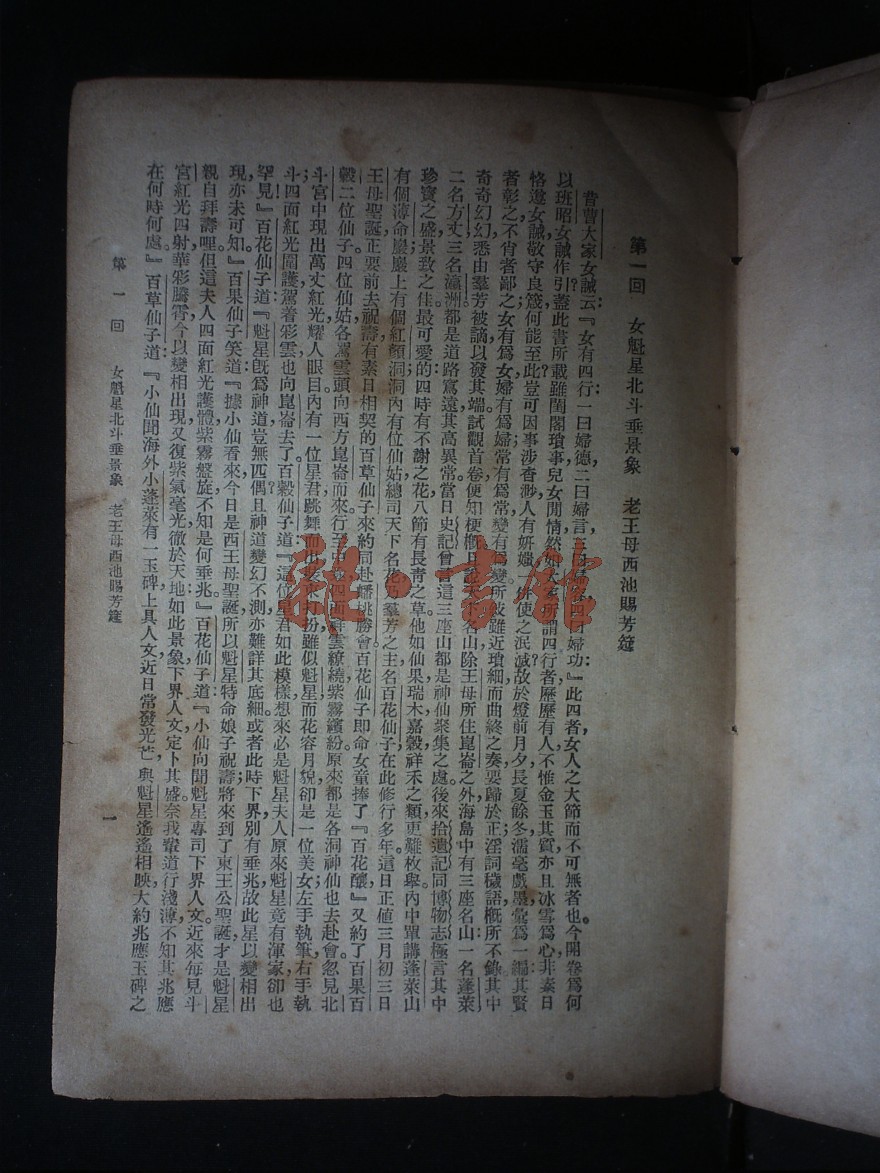 第一回　女魁星北斗垂景象　老王母西池賜芳筵
昔曹大家女誡云：『女有四行：一曰婦德，二曰婦言，三曰婦容，四曰婦功。』此四者，女人之大節而不可無者也。今開卷爲何
以班昭女誡作引？蓋此書所載雖閨閣瑣事，兒女閒情，然如大家所謂四行者，歷歷有人；不惟金玉其質，亦且冰雪爲心。非素日
恪遵女誡，敬守良箴，何能至此？豈可因事涉杳渺，人有妍媸，一併使之泯滅？故於燈前月夕，長夏餘冬，濡毫戲墨，彙爲一編；其賢
者彰之，不肖者鄙之；女有爲女，婦有爲婦；常有爲常，變有爲變。所敍雖近瑣細，而曲終之奏，要歸於正，淫詞穢語，概所不錄。其中
奇奇幻幻，悉由羣芳被謫，以發其端，試觀首卷，便知梗概。且說天下名山，除王母所住崑崙之外，海島中有三座名山：一名蓬萊，
二名方丈，三名瀛洲。都是道路窵遠，其高異常。當日史記曾言這三座山都是神仙聚集之處。後來拾遺記同博物志極言其中
珍寶之盛，景致之佳。最可愛的，四時有不謝之花，八節有長青之草。他如仙果、瑞木、嘉穀、祥禾之類，更難枚舉。內中單講蓬萊山
有個薄命巖，巖上有個紅顏洞，洞內有位仙姑，總司天下名花，乃羣芳之主，名百花仙子，在此修行多年。這日正值三月初三日
王母聖誕，正要前去祝壽，有素日相契的百草仙子來約同赴蟠桃勝會。百花仙子即命女童捧了『百花釀』；又約了百果、百
穀二位仙子。四位仙姑，各駕雲頭，向西方崑崙而來。行至中途，四面祥雲繚繞，紫霧繽紛，原來都是各洞神仙，也去赴會。忽見北
斗宮中現出萬丈紅光，耀人眼目，內有一位星君，跳舞而出。裝束打扮，雖似魁星，而花容月貌，卻是一位美女。左手執筆，右手執
斗；四面紅光圍護，駕着彩雲，也向崑崙去了。百穀仙子道：『這位星君如此模樣，想來必是魁星夫人。原來魁星竟有渾家，卻也
罕見！』百花仙子道：『魁星旣爲神道，豈無匹偶？且神道變幻不測，亦難詳其底細。或者此時下界別有垂兆，故此星以變相出
現，亦未可知。』百果仙子笑道：『據小仙看來：今日是西王母聖誕，所以魁星特命娘子祝壽；將來到了東王公聖誕，才是魁星
親自拜壽哩。但這夫人四面紅光護體，紫霧盤旋，不知是何垂兆？』百花仙子道：『小仙向聞魁星專司下界人文。近來每見斗
宮紅光四射，華彩騰霄，今以變相出現，又復紫氣毫光，徹於天地，如此景象，下界人文，定卜其盛。奈我輩道行淺薄，不知其兆應
在何時何處。』百草仙子道：『小仙聞海外小蓬萊有一玉碑，上具人文，近日常發光芒，與魁星遙遙相映，大約兆應玉碑之
第一回　女魁星北斗垂景象　老王母西池賜芳筵　一
雜·書館